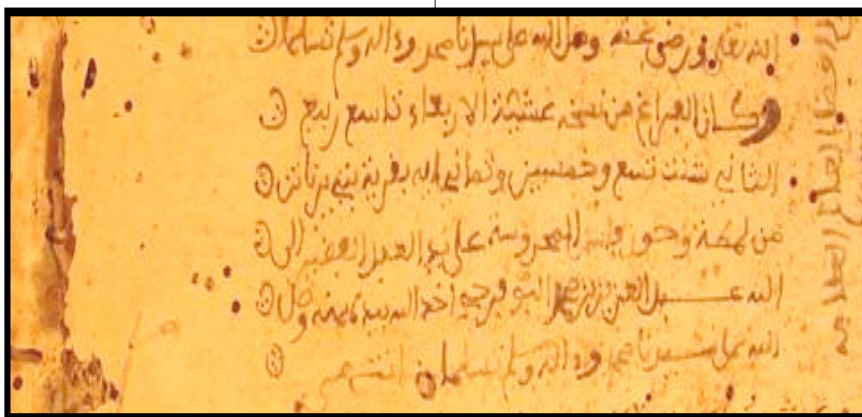 الله تعلى ورضي عنه وصلى الله على سيدنا محمد وءاله وسلم تسليما
وكان الفراغ من نسخه عشية الاربعاء تاسع ربيع
الثاني سنت تسع وخمسين وثماني بقرية بني
من وحوز فاس المحروسة على يد العبد الفقير الى
الله عبد العزيز بن محمد اخذ الله بيده بمنه وصلى
الله على سيدنا محمد وءاله وسلم تسليما انتهى